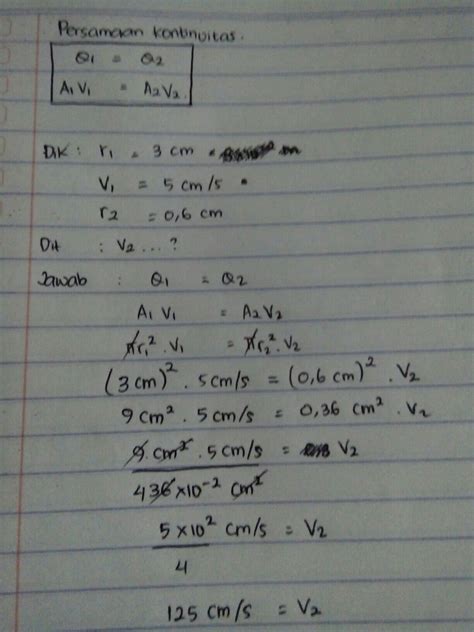 Persamaan kontinuitas.
Q1 = Q2
A1 V1 = A2 V2.
Dik : r1 = 3 cm
V1 = 5 cm/s
r2 = 0,6 cm
Dit : V2 ... ?
Jawab : Q1 = Q2
A1 V1 = A2 V2
πr1² . V1 = πr2² . V2
(3 cm)² . 5 cm/s = (0,6 cm)² . V2
9 cm² . 5 cm/s = 0,36 cm² . V2
9 cm² . 5 cm/s = V2
4 36 × 10⁻² cm²
5 × 10² cm/s = V2
4
125 cm/s = V2